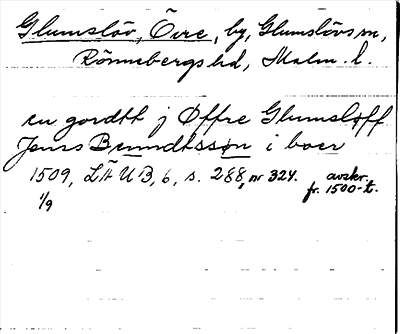 Glumslöv, Övre, by, Glumslövs sn,
Rönnebergs hd, Malm. l.
en gordtt j Øffre Glumsløff
Jens Bundtssøn i boer
1509, LÄUB, 6, s. 288, nr 324. avskr.
1/9 fr. 1500-t.